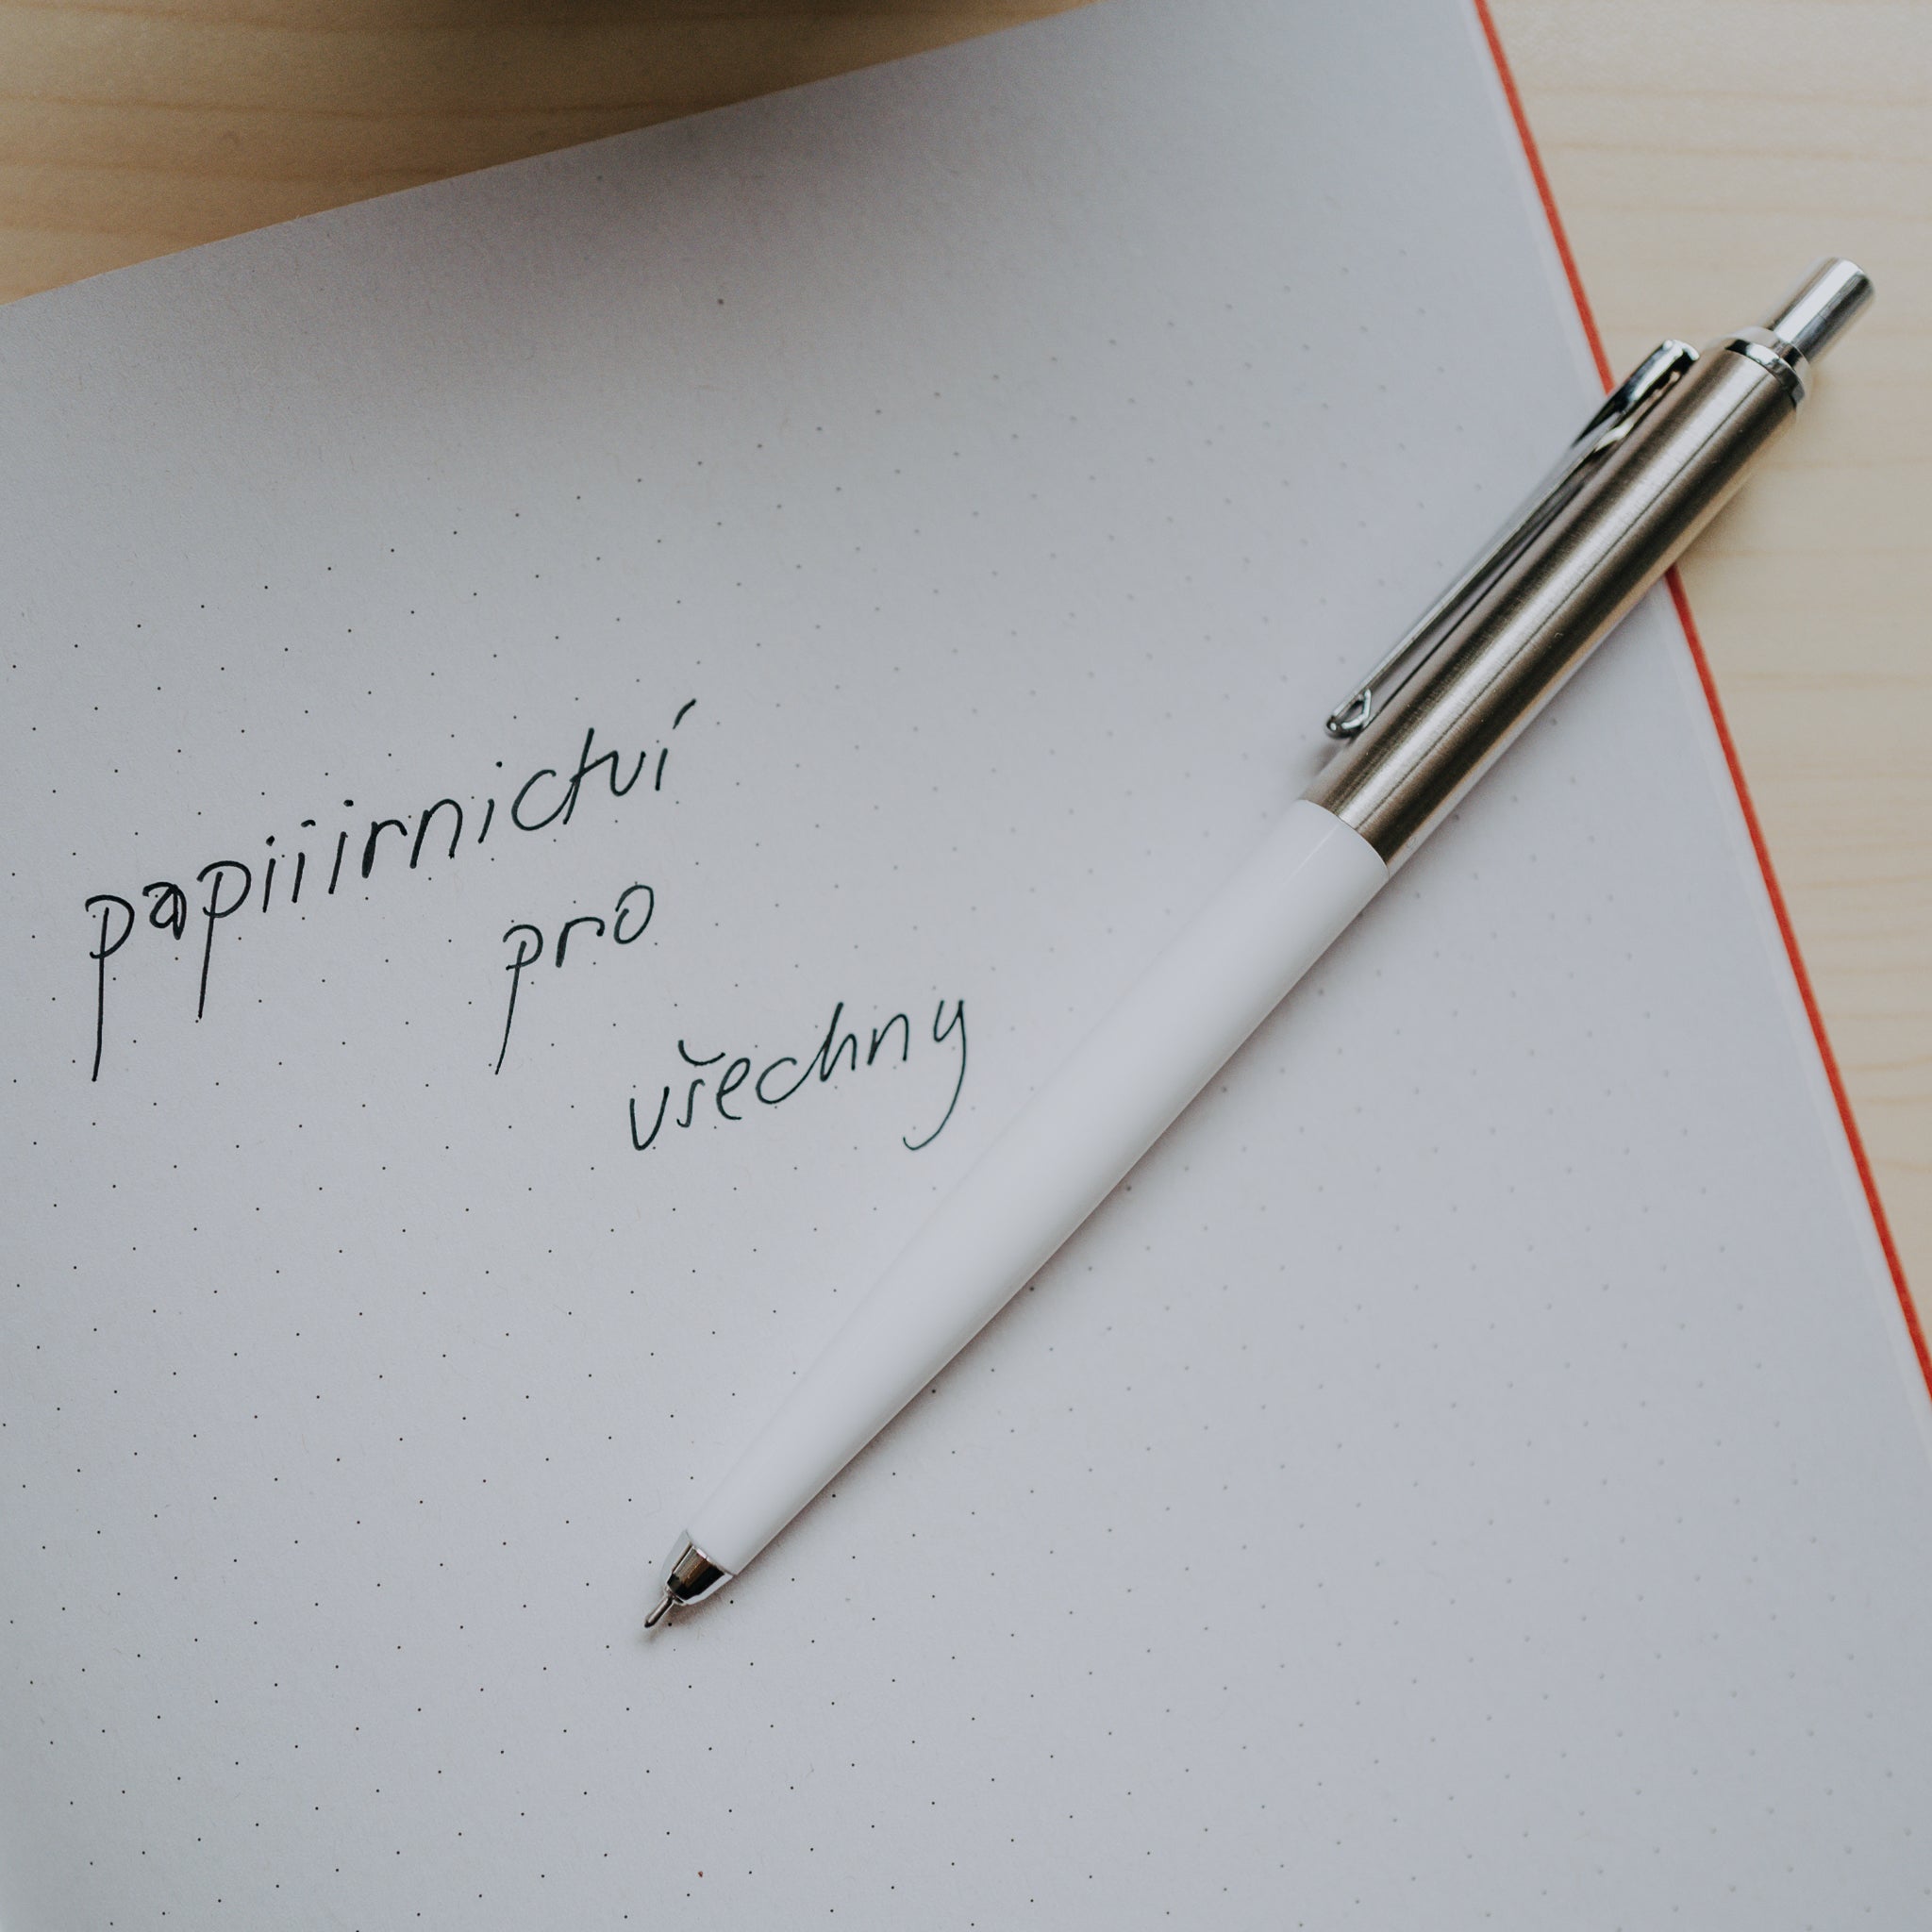 papiiirnictví
pro
všechny